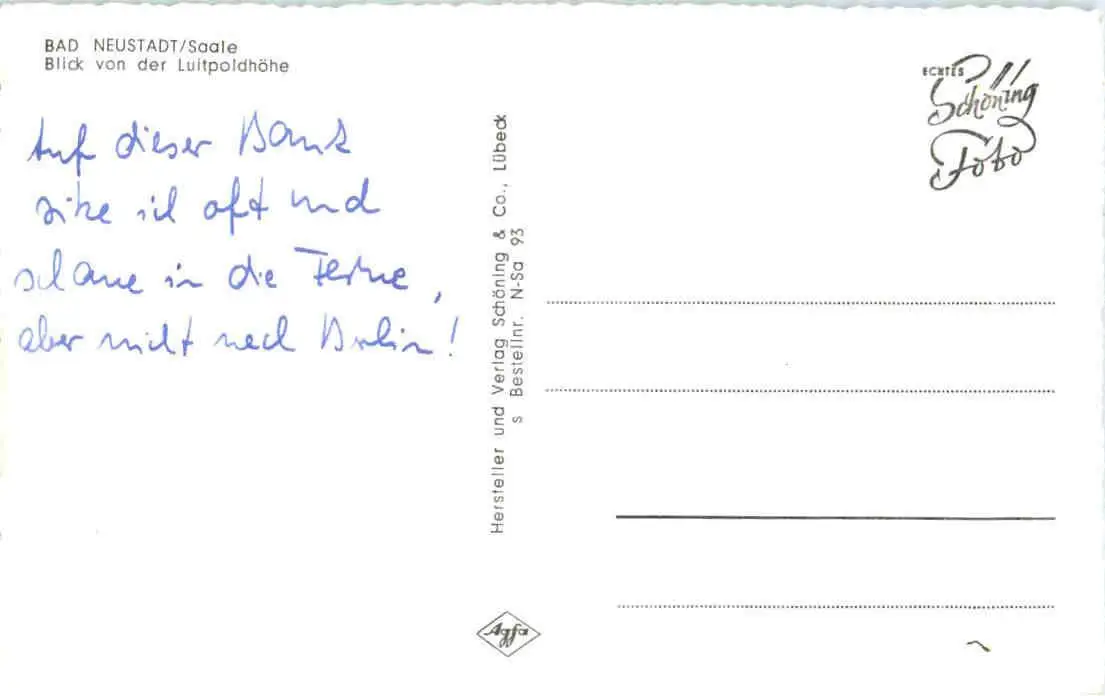 BAD NEUSTADT/Saale
Blick von der Luitpoldhöhe
Auf dieser Bank
sitze ich oft und
schaue in die Ferne,
aber nicht nach Berlin!
Hersteller und Verlag Schöning & Co., Lübeck
s Bestellnr. N-Sa 93
ECHTES
Schöning
Foto
Agfa